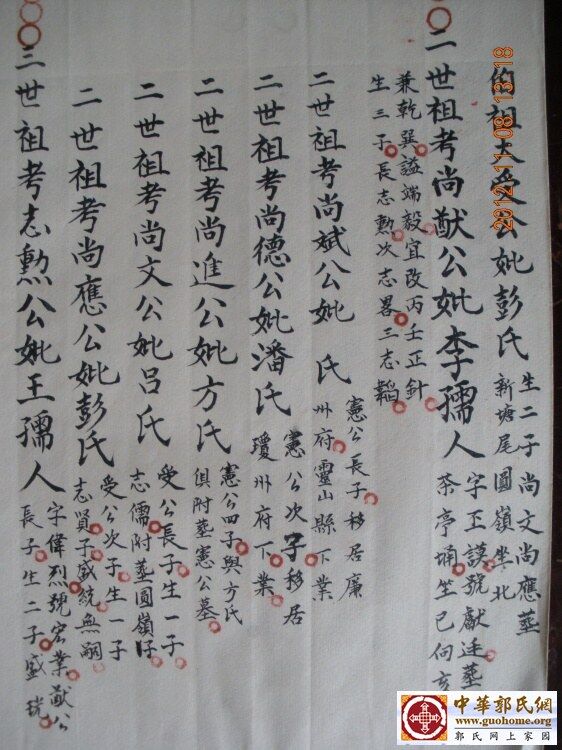 伯祖夫受公妣彭氏
生二子尚文尚應葬
新塘尾圓嶺坐北
二世祖考尚猷公妣李孺人
字正謨號獻廷葬
茶亭埇坐巳向亥
兼乾巽謚端毅宜改丙壬正針
生三子長志勲次志畧三志韜
二世祖考尚斌公妣 氏
憲公長子移居廉
州府靈山縣下業
二世祖考尚德公妣潘氏
憲公次子移居
瓊州府下業
二世祖考尚進公妣方氏
憲公四子與方氏
俱附葬憲公墓
二世祖考尚文公妣吕氏
受公長子生一子
志儒附葬圓嶺仔
二世祖考尚應公妣彭氏
受公次子生一子
志賢子盛統無嗣
三世祖考志勲公妣王孺人
字偉烈號宏業猷公
長子生二子盛琥
2012.11.08 13:18
中華郭氏網
www.guohome.org
郭氏网上家园